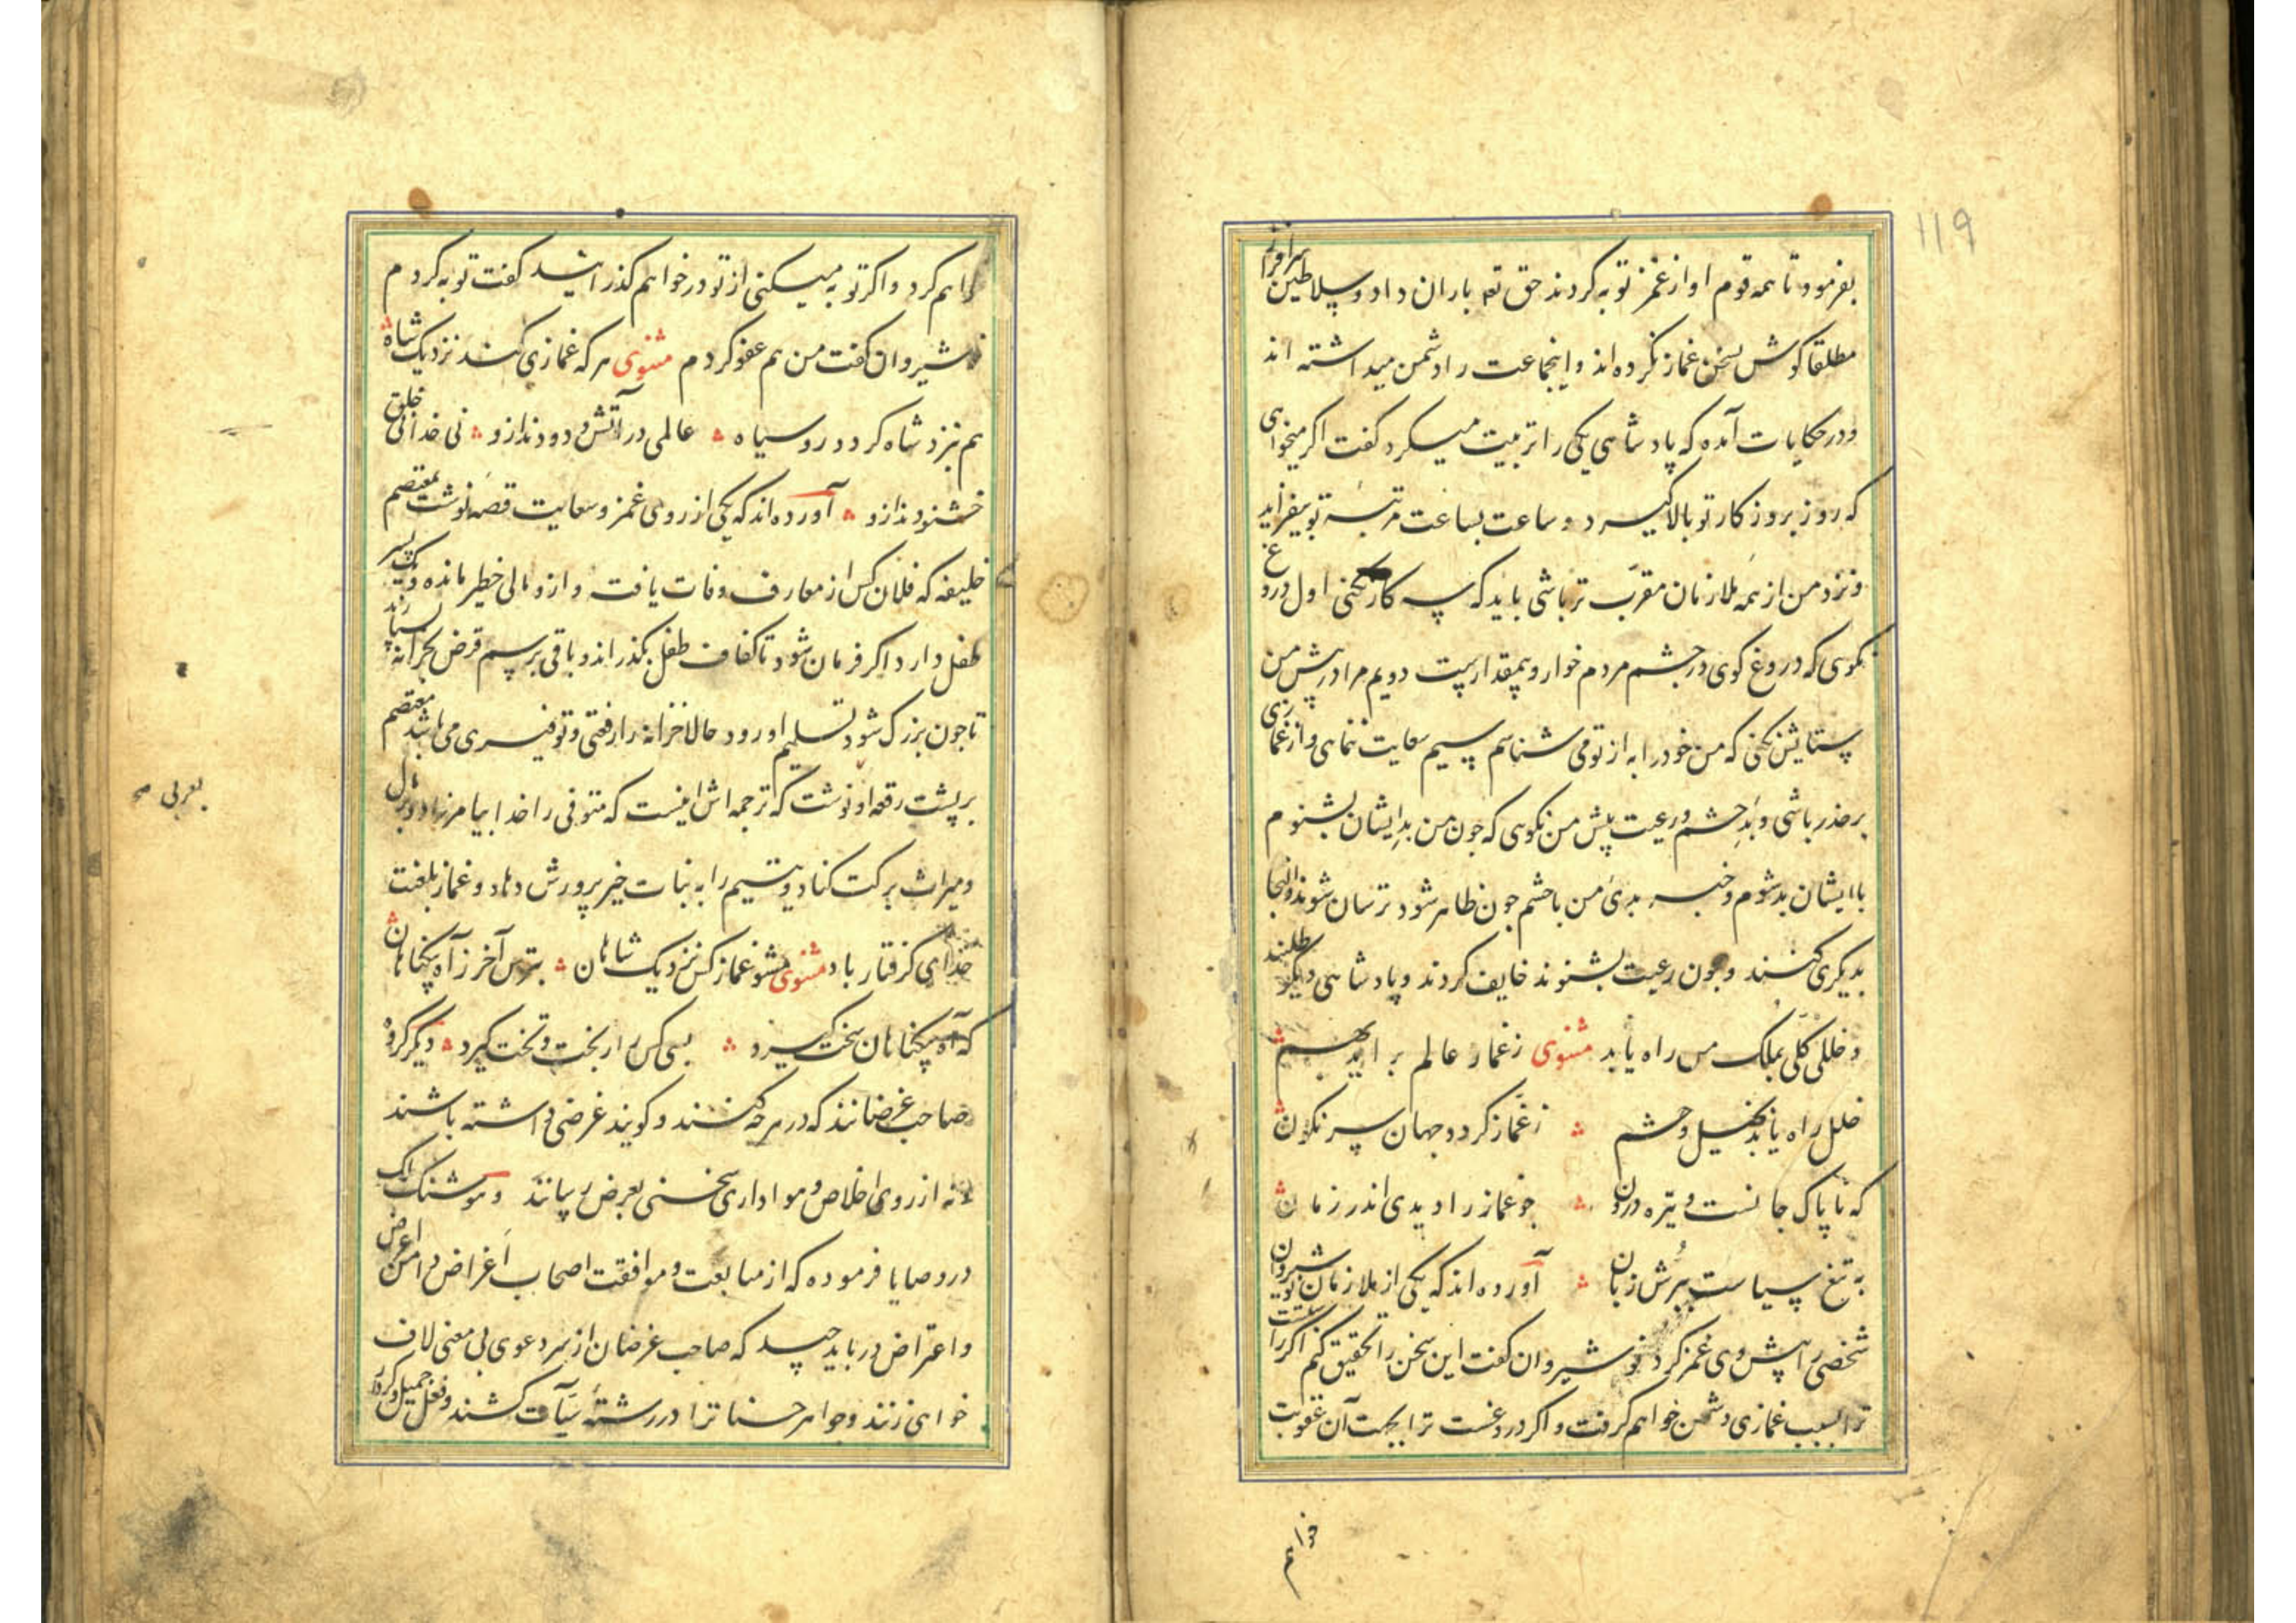 119
بفرمود تا همه قوم او از غمز توبه کردند حق تعه باران داد و سلاطین
مطلقا کوش بسخن غماز نکرده اند و اینجماعت را دشمن میداشته اند
و در حکایات آمده که پادشاهی یکی را تربیت میکرد کفت اکر میخواهی
که روز بروز کار تو بالا کیرد و ساعت بساعت مرتبه تو بیفزاید
و نزد من از همه ملازمان مقرب تر باشی باید که سه کار نکنی اول دروغ
نکوی که دروغ کوی در چشم مردم خوار و بیمقدارست دویم مرا در پیش من
ستایش نکنی که من خود را به از تو می شناسم سیم سعایت ننمای و از غمازی
برحذر باشی و بد حشم و رعیت پیش من نکوی که چون من بد ایشان بشنوم
با ایشان بد شوم و خبر بدی من با حشم چون ظاهر شود ترسان شوند و التجا
بدیکری کنند و چون رعیت بشنوند خایف کردند و پادشاهی دیکر طلبند
و خللی کلی بملک من راه یابد مثنوی ز غماز عالم بر آید بهم
خلل راه یابد بخیل و حشم ز غماز کردد جهان سرنکون
که ناپاک جانست و تیره درون چو غماز را دیدی اندر زمان
به تیغ سیاست ببرش زبان آورده اند که یکی از ملازمان نوشیروان
شخصی را پیش وی غمز کرد نوشیروان کفت این سخن را تحقیق کنم اکر راست
ترا بسبب غمازی دشمن خواهم کرفت و اکر دروغست ترا بجهت آن عقوبت
خواهم
خواهم کرد و اکر توبه میکنی از تو در خواهم کذرانید کفت توبه کردم
نوشیروان کفت من هم عفو کردم مثنوی هر که غمازی کند نزدیک شاه
هم بنزد شاه کردد رو سیاه عالمی در آتش و دودند ازو نی خدا نی خلق
خشنودند ازو آورده اند که یکی از روی غمز و سعایت قصه نوشت بمعتصم
خلیفه که فلان کس از معارف وفات یافت و ازو مالی خطیر مانده و یک پسر
طفل دارد اکر فرمان شود تا کفاف طفل بکذراند و باقی برسم قرض بخزانه رسانند
تا چون بزرک شود تسلیم او رود حالا خزانه را رفقی و توفیری می باشد معتصم
بر پشت رقعه او نوشت که ترجمه اش اینست که متوفی را خدا بیامرزاد و بر مال
بعربی صح
و میراث برکت کناد و یتیم را به نبات خیر پرورش دهاد و غماز بلعنت
خدای کرفتار باد مثنوی مشو غماز کس نزدیک شاهان بترس آخر ز آه بیکناهان
که آه بیکناهان سخت کیرد بسی کس را ز بخت و تخت کیرد دیکر کروه
صاحب غرضانند که در هرچه کنند و کویند غرضی داشته باشند
نه از روی اخلاص و هواداری سخنی بعرض رسانند و هوشنک ملک
در وصایا فرموده که از متابعت و موافقت اصحاب اغراض دامن اعراض
و اعتراض در باید چید که صاحب غرضان از سر دعوی بی معنی لاف
خواهی زنند و جواهر حسنات ترا در رشته سیآت کشند و فعل جمیل و کردار